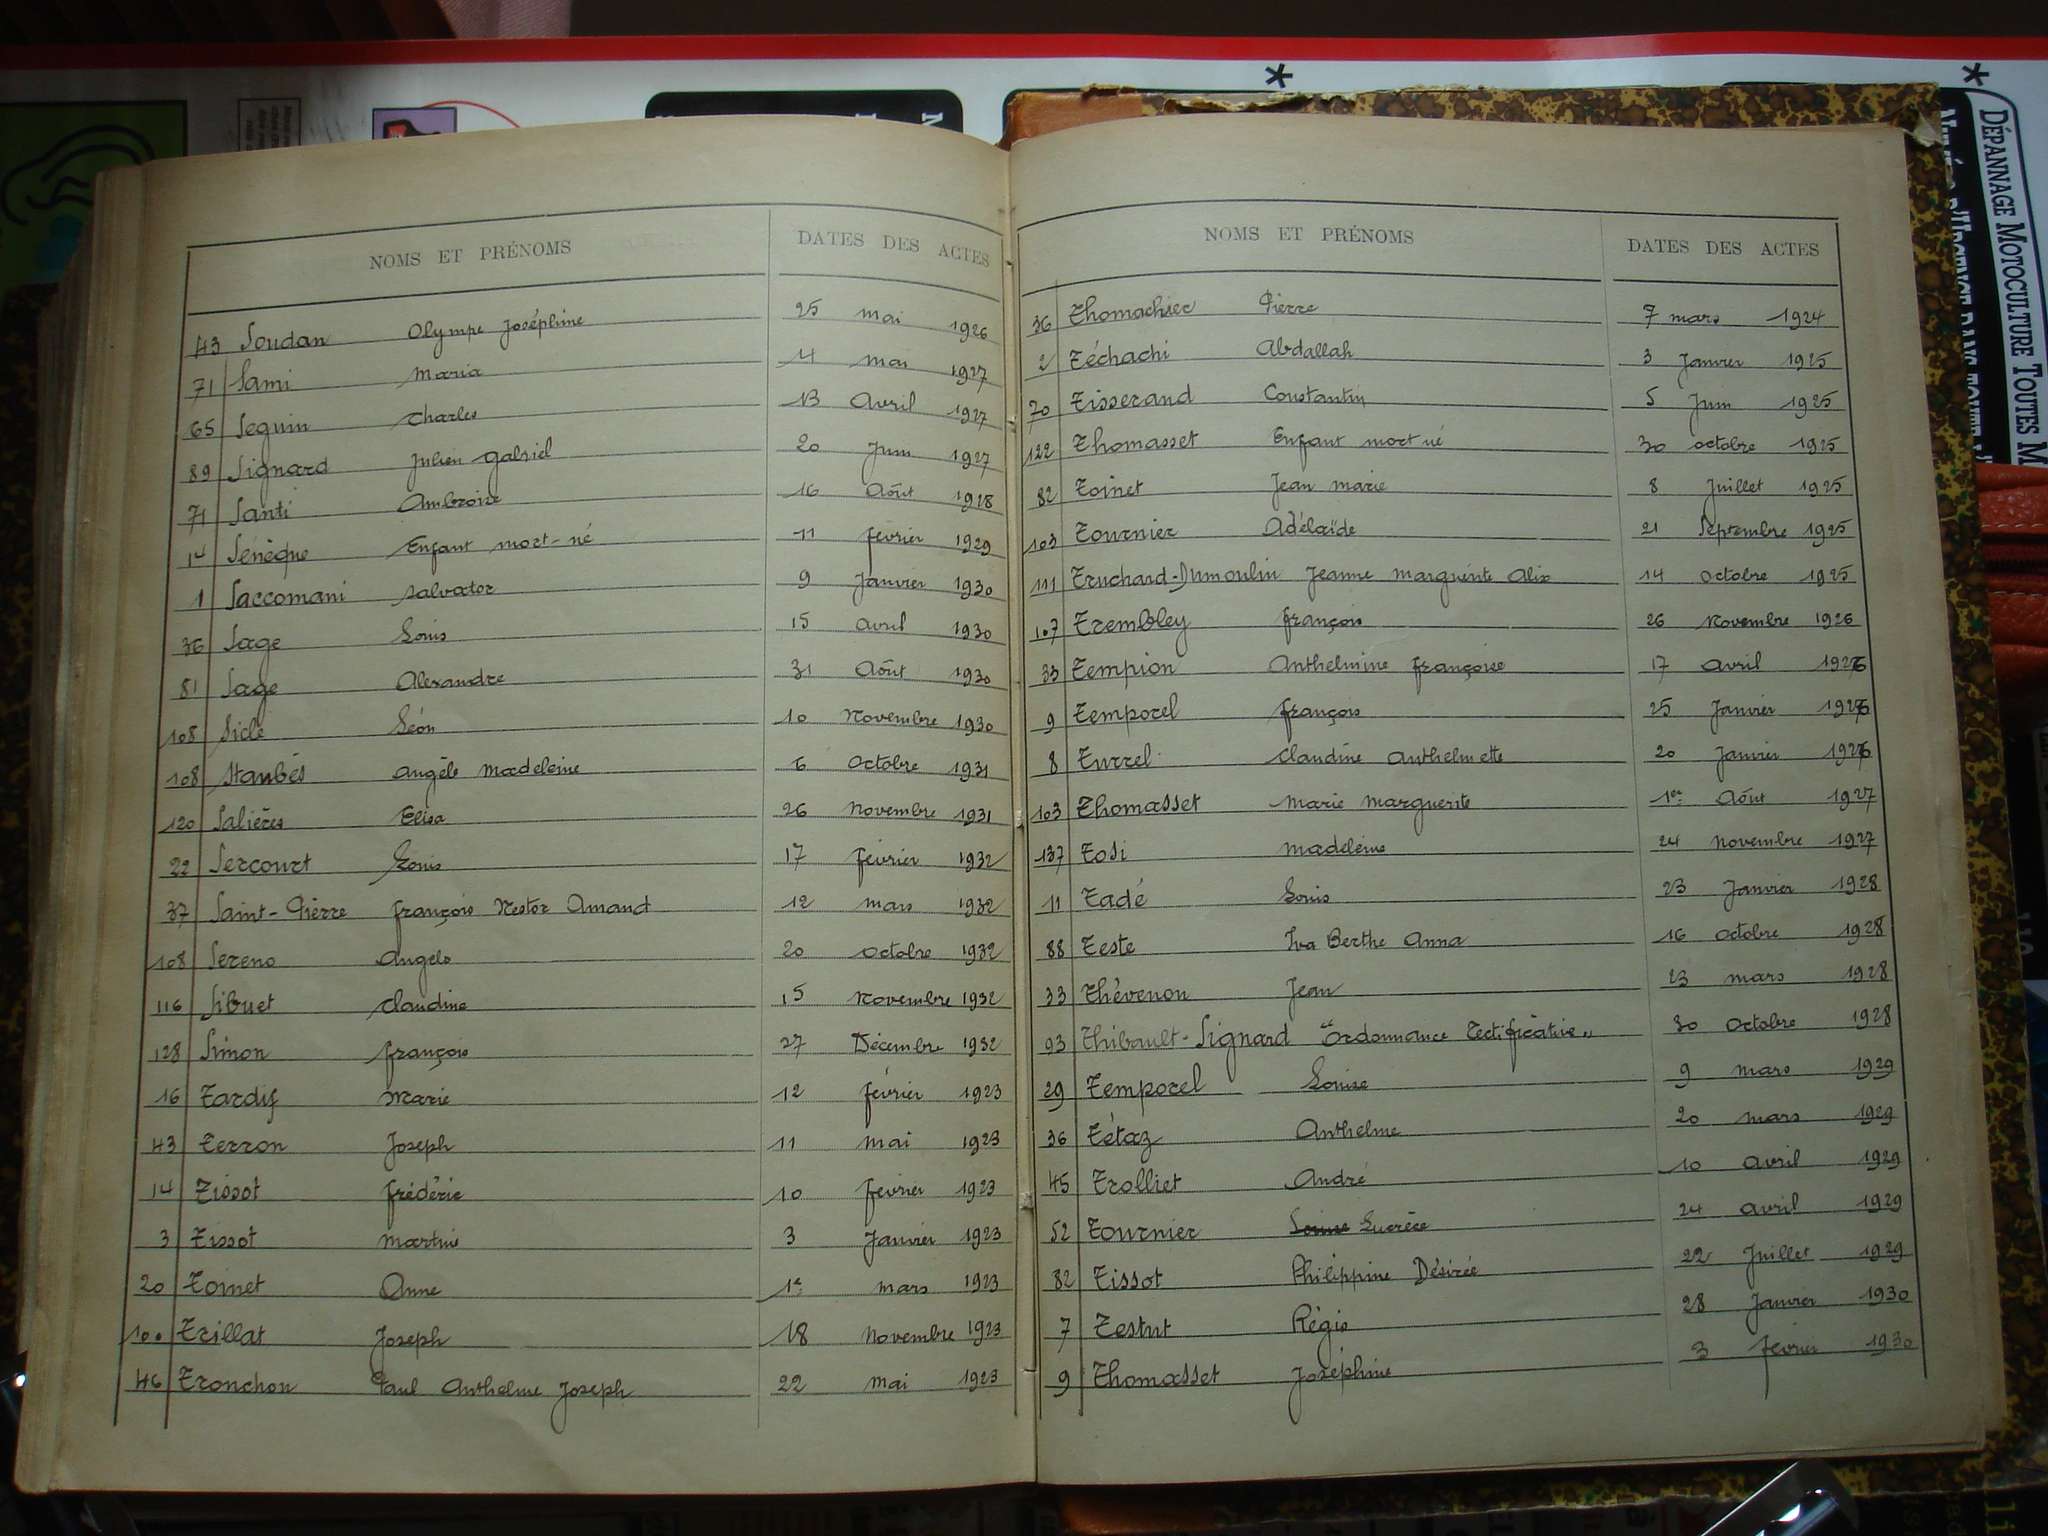 DÉPANNAGE MOTOCULTURE TOUTES M
NOMS ET PRÉNOMS DATES DES ACTES
43 Soudan Olympe Joséphine 25 mai 1926
71 Sami Maria 4 mai 1927
65 Seguin Charles 13 Avril 1927
89 Signard Julien Gabriel 20 Juin 1927
71 Santi Ambroise 16 Août 1928
14 Sénèque Enfant mort-né 11 février 1929
1 Saccomani Salvator 9 Janvier 1930
36 Sage Louis 15 avril 1930
81 Sage Alexandre 31 Août 1930
108 Siclé Léon 10 Novembre 1930
108 Staubés Angèle Madeleine 6 Octobre 1931
120 Salières Elisa 26 Novembre 1931
22 Sercourt Louis 17 février 1932
37 Saint-Pierre françois Nestor Amand 12 mars 1932
108 Sereno Angelo 20 Octobre 1932
116 Sibuet Claudine 15 Novembre 1932
128 Simon françois 27 Décembre 1932
16 Tardif Marie 12 février 1923
43 Terron Joseph 11 mai 1923
14 Tissot frédéric 10 février 1923
3 Tissot Martine 3 Janvier 1923
20 Toinet Anne 1er mars 1923
100 Trillat Joseph 18 Novembre 1923
46 Tronchon Paul Anthelme Joseph 22 Mai 1923
NOMS ET PRÉNOMS DATES DES ACTES
36 Thomachier Pierre 7 mars 1924
2 Téchachi Abdallah 3 Janvier 1925
70 Tisserand Constantin 5 Juin 1925
122 Thomasset Enfant mort né 30 octobre 1925
82 Toinet Jean marie 8 Juillet 1925
103 Tournier Adélaïde 21 Septembre 1925
111 Truchard-Dumoulin Jeanne Marguerite Alix 14 octobre 1925
107 Trembley françois 26 Novembre 1926
33 Tempion Anthelmine françoise 17 avril 1926
9 Temporel françois 25 Janvier 1926
8 Turrel Claudine Anthelmette 20 Janvier 1926
103 Thomasset Marie Marguerite 1er Août 1927
137 Tosi Madeleine 24 Novembre 1927
11 Tadé Louis 23 Janvier 1928
88 Teste Iva Berthe Anna 16 octobre 1928
33 Thévenon Jean 23 mars 1928
93 Thibault-Signard "Ordonnance Rectificative" 30 Octobre 1928
29 Temporel Louise 9 mars 1929
36 Tétaz Anthelme 20 mars 1929
45 Trolliet André 10 avril 1929
52 Tournier Louise Lucrèce 24 avril 1929
82 Tissot Philippine Désirée 22 Juillet 1929
7 Testut Régis 28 Janvier 1930
9 Thomasset Joséphine 3 février 1930